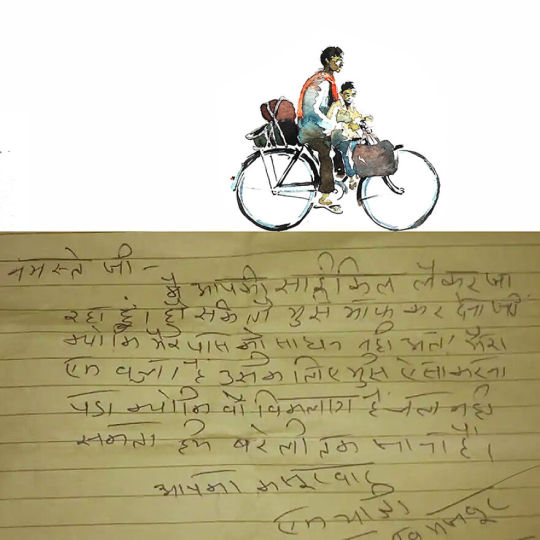 नमस्ते जी -
मै आपकी साईकिल लेकर जा
रहा हूं। हो सके तो मुझे माफ कर देना जी
क्योकि मेरे पास को साधन नही
एक बच्चा है उसके लिए मुझे ऐसा करना
पडा क्योकि वो विकलांग है चल नही
सकता हमे बरेली तक जाना है।
आपका कसूरवार
एक यात्री
मजबूर